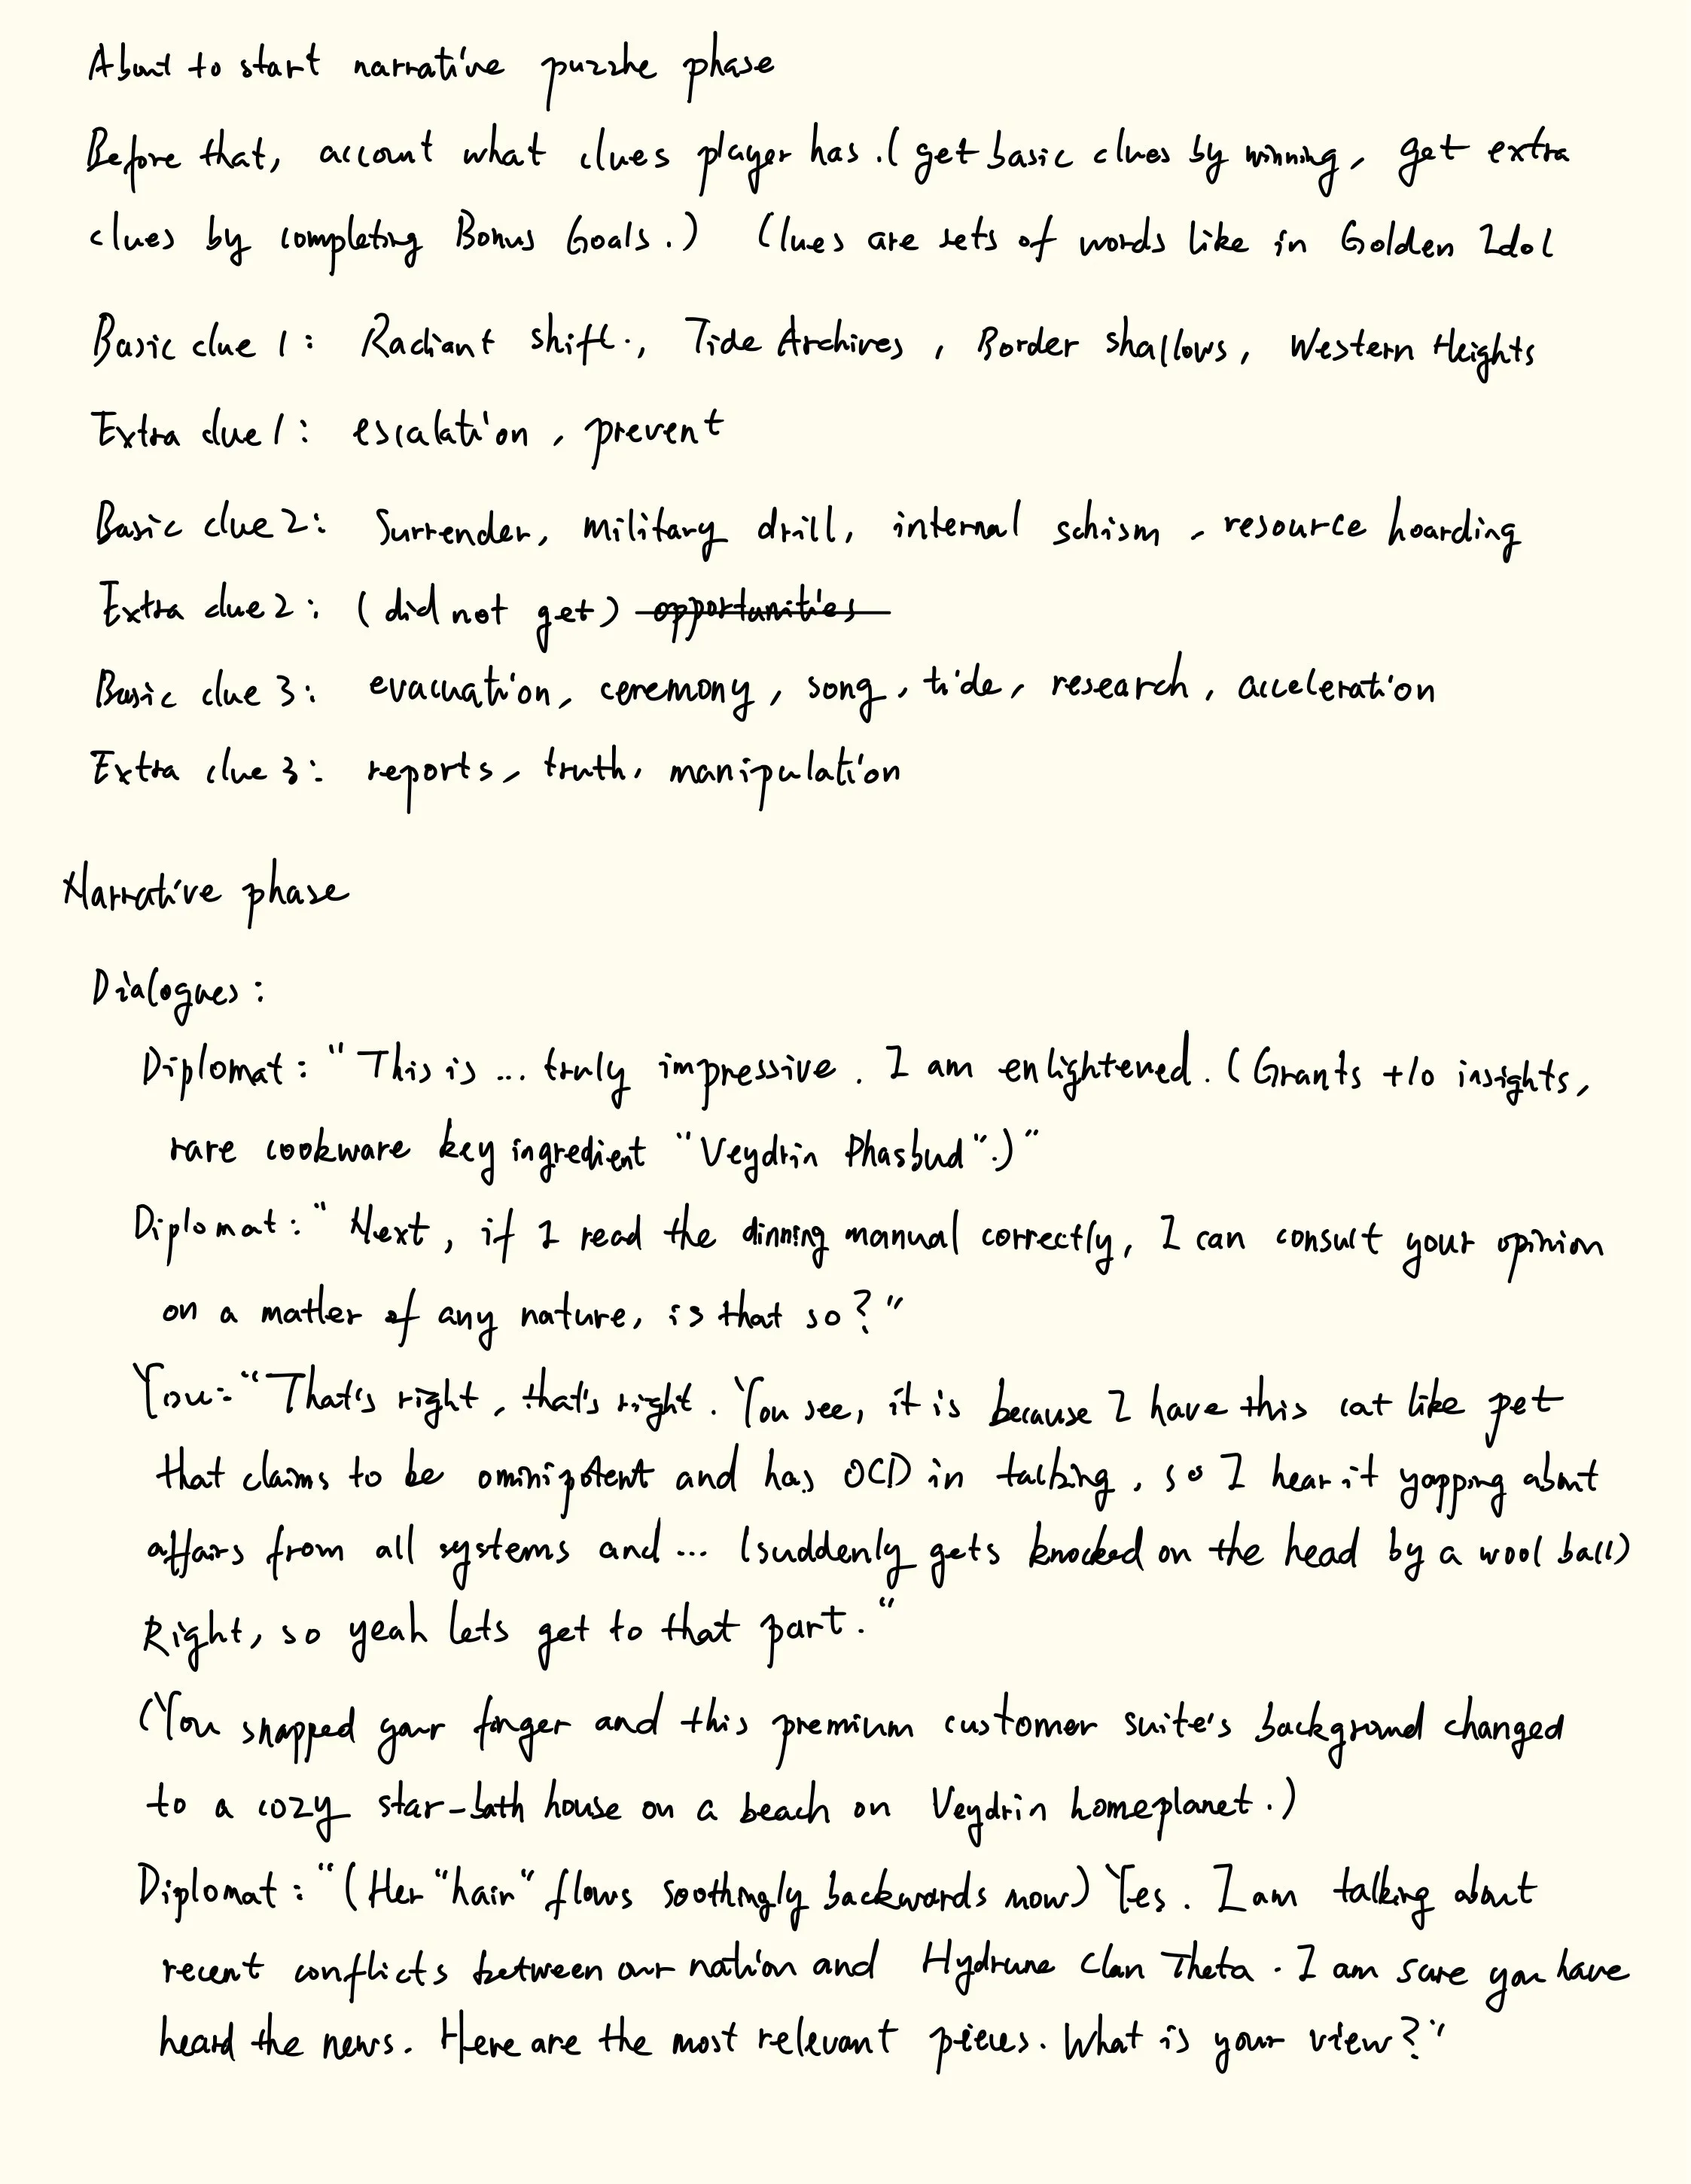 About to start narrative puzzle phase
Before that, account what clues player has. (get basic clues by winning, get extra
clues by completing Bonus Goals.) (Clues are sets of words like in Golden Idol
Basic clue 1: Radiant shift., Tide Archives, Border shallows, Western Heights
Extra clue 1: escalation, prevent
Basic clue 2: Surrender, military drill, internal schism, resource hoarding
Extra clue 2: (did not get) opportunities
Basic clue 3: evacuation, ceremony, song, tide, research, acceleration
Extra clue 3: reports, truth, manipulation
Narrative phase
Dialogues:
Diplomat: "This is ... truly impressive. I am enlightened. (Grants +10 insights,
rare cookware key ingredient "Veydrin Phasbud".)"
Diplomat: "Next, if I read the dinning manual correctly, I can consult your opinion
on a matter of any nature, is that so?"
You: "That's right, that's right. You see, it is because I have this cat like pet
that claims to be ominipotent and has OCD in talking, so I hear it yapping about
affairs from all systems and... (suddenly gets knocked on the head by a wool ball)
Right, so yeah lets get to that part."
(You snapped your finger and this premium customer suite's background changed
to a cozy star-bath house on a beach on Veydrin homeplanet.)
Diplomat: "(Her "hair" flows soothingly backwards now) Yes. I am talking about
recent conflicts between our nation and Hydrune Clan Theta. I am sure you have
heard the news. Here are the most relevant pieces. What is your view?"